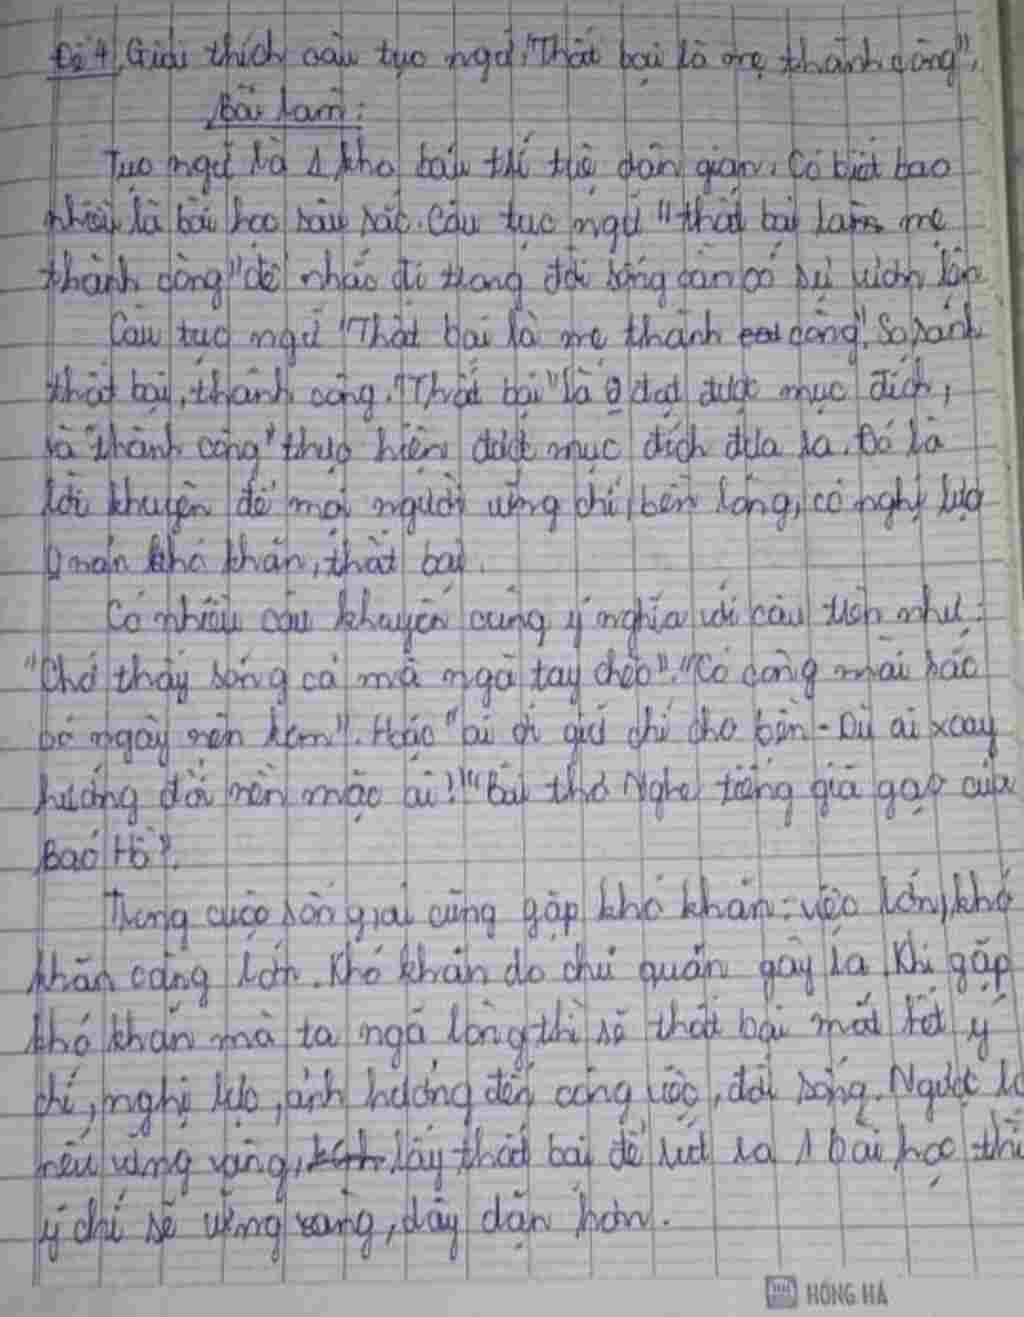 Đề 4, Giải thích câu tục ngữ "Thất bại là mẹ thành công".
Bài làm:
Tục ngữ là 1 kho báu trí tuệ dân gian. Có biết bao
nhiêu là bài học sâu sắc. Câu tục ngữ "thất bại là mẹ
thành công" để nhắc đi trong đời sống cần có sự vươn lên
Câu tục ngữ "Thất bại là mẹ thành công". So sánh
thất bại, thành công. "Thất bại" là 0 đạt được mục đích,
là "thành công" thực hiện được mục đích đưa ra. Đó là
lời khuyên để mọi người vững chí, bền lòng, có nghị lực
khó khăn, thất bại.
Có nhiều câu khuyên cùng ý nghĩa với câu trên như:
"Chớ thấy sóng cả mà ngã tay chèo". "Có công mài sắc
có ngày nên kim". Hoặc "ai ơi giữ chí cho bền - Dù ai xoay
hướng đổi nền mặc ai!" "Bài thơ Nghe tiếng giã gạo của
Bác Hồ".
Trong cuộc sống ai cũng gặp khó khăn: việc lớn, khó
khăn càng lớn. Khó khăn do chủ quan gây ra. Khi gặp
khó khăn mà ta ngã lòng thì sẽ thất bại mất hết ý
chí, nghị lực, ảnh hưởng đến công việc, đời sống. Ngược lại
nếu vững vàng, lấy thất bại để rút ra 1 bài học thì
ý chí sẽ vững vàng, dày dặn hơn.
HỒNG HÀ